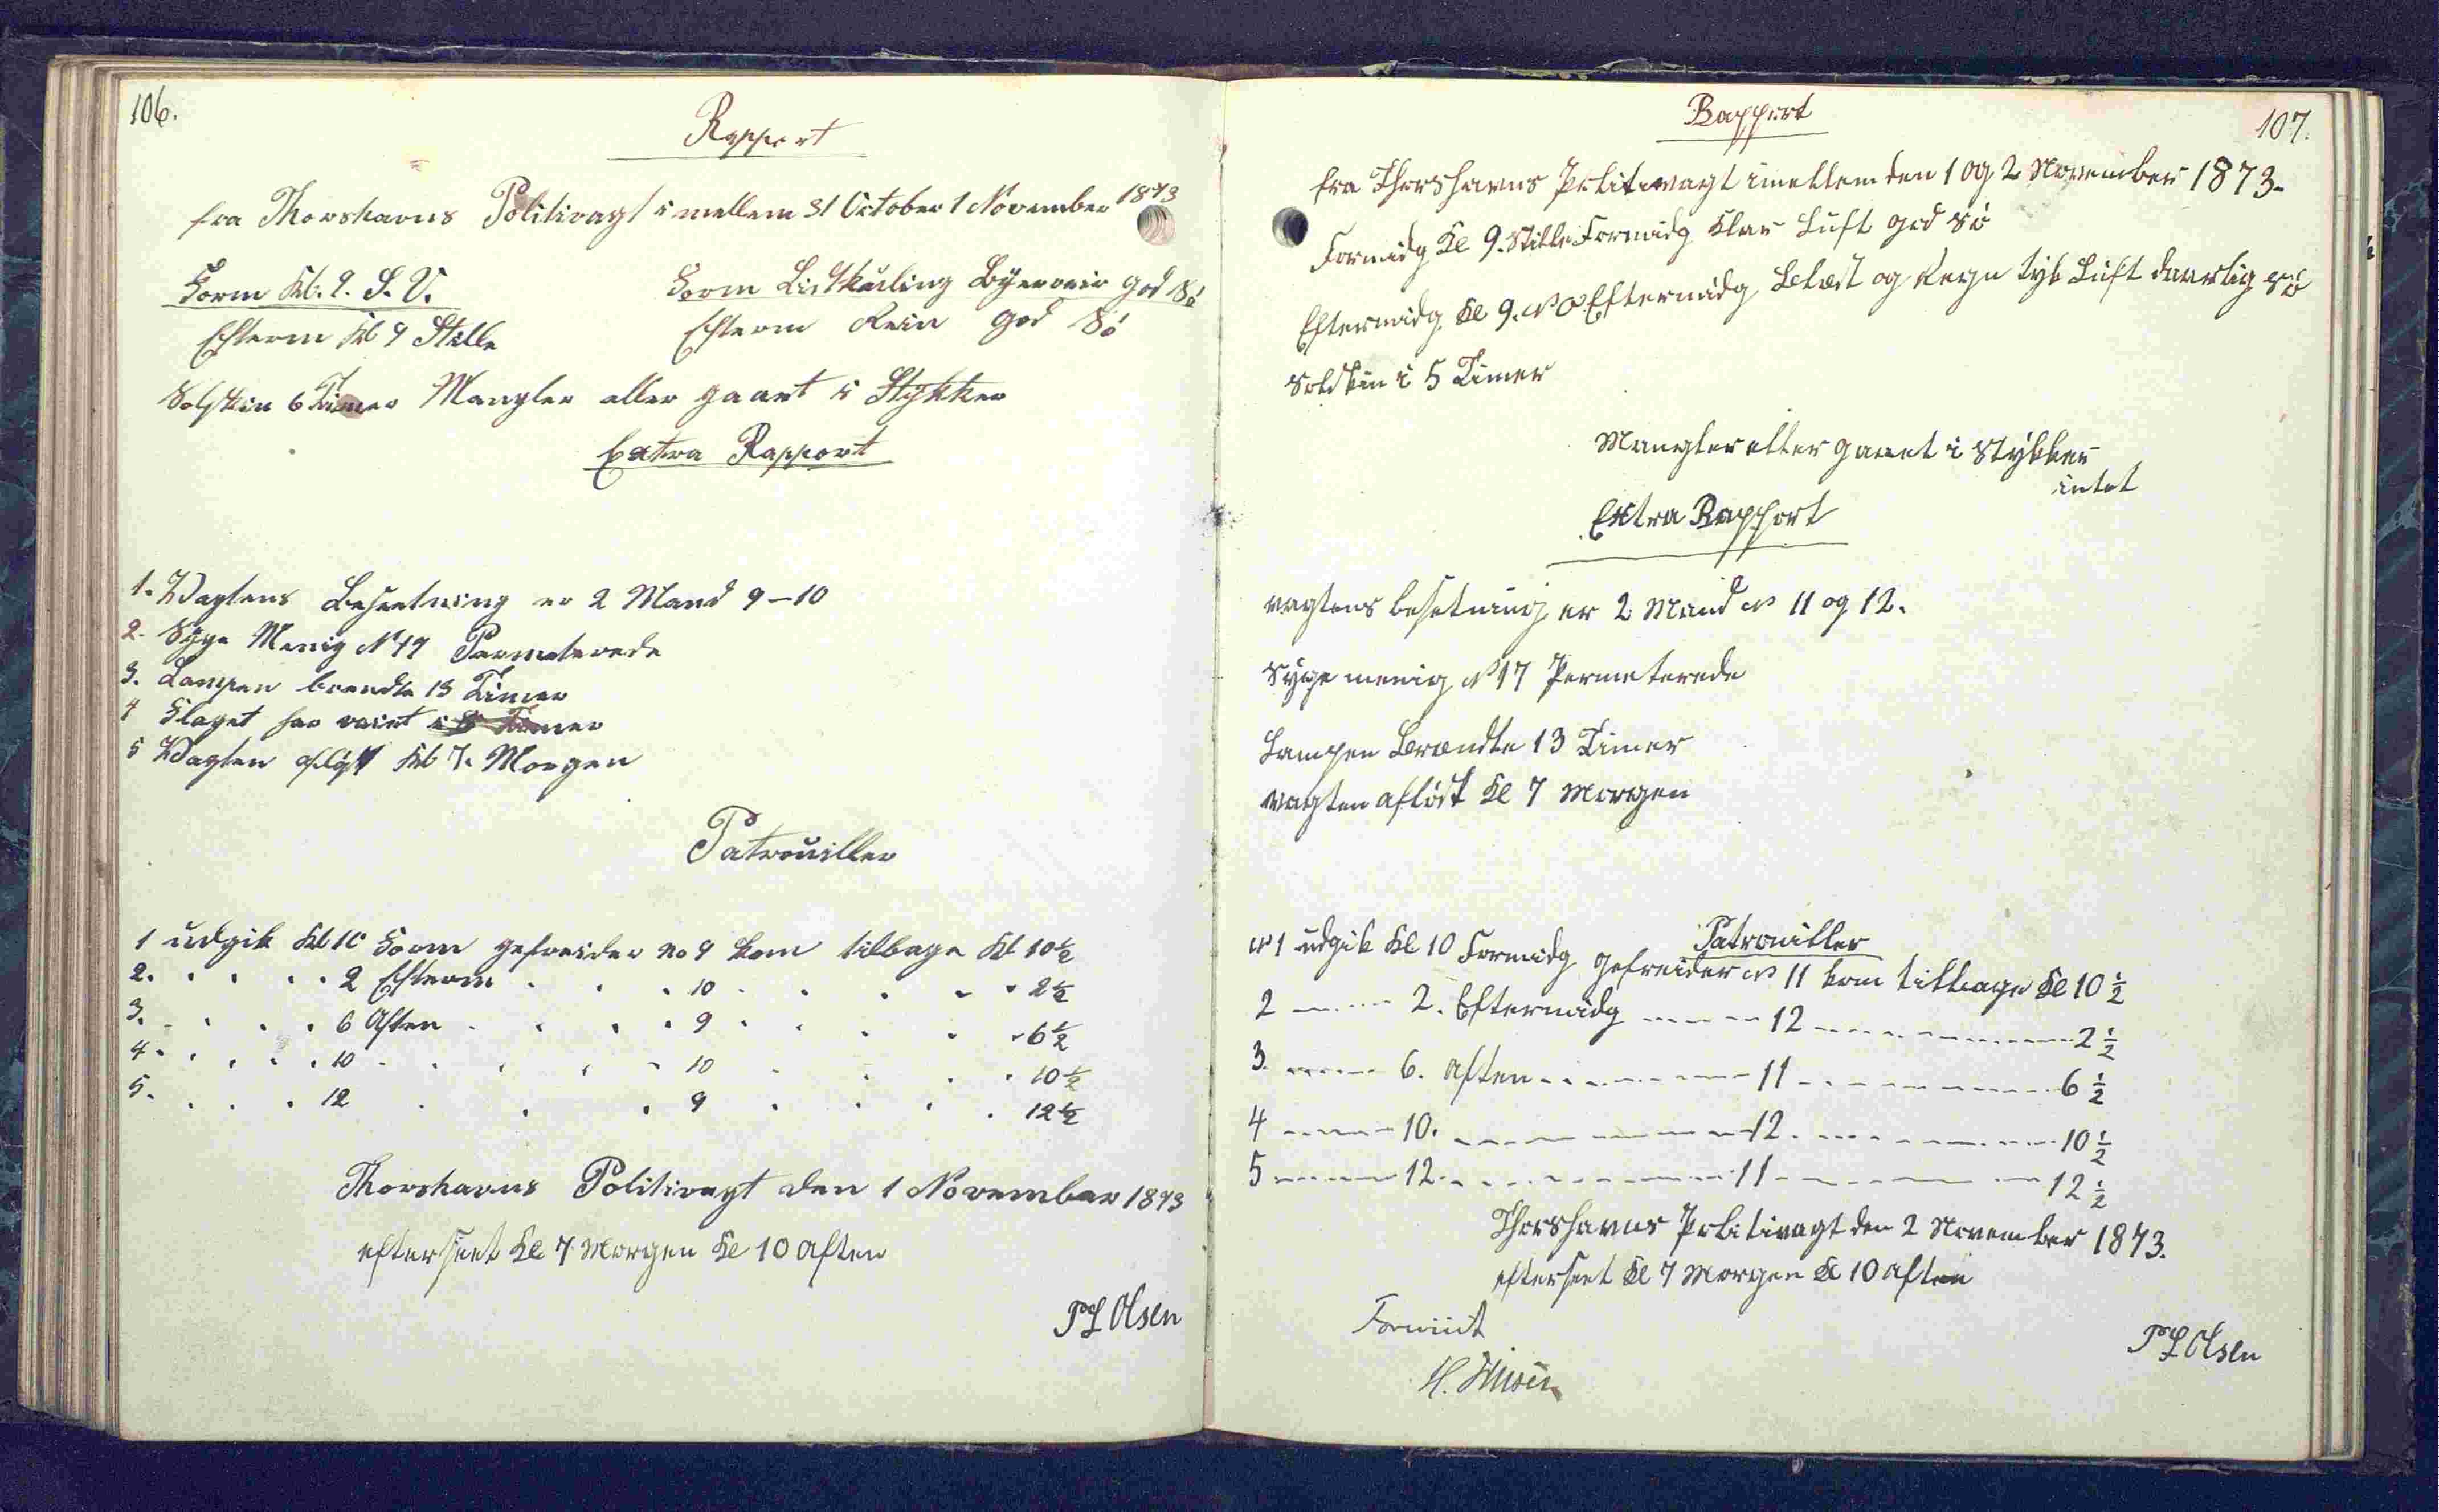 106.
Rapport
fra Thorshavns Politivagt i mellem 31 October 1 November 1873
Form Kl. 9. S. V. Form Lidtkuling Byeveir god Sö
Efterm Kl 9 Stille Efterm Rein god Sö
Solskin 6 Timer Mangler eller gaaet i Stykker
Extra Rapport
1. Vagtens Besætning er 2 Mand 9-10
2. Syge Menig N 17 Permeterede
3. Lampen brendte 13 Timer
4 Flaget har veiret i Timer
5 Vagten aflöst Kl 7. Morgen
Patrouiller
1 udgik Kl 10 Form gefreider No 9 kom tilbage Kl 10½
2. . . . . 2 Efterm . . . 10 . . . . . 2½
3. . . . . 6 Aften . . . . 9 . . . . . 6½
4. . . . . 10 . . . . . 10 . . . . 10½
5. . . . 12 . . . 9 . . . . 12½
Thorshavns Politivagt den 1 November 1873
efterseet Kl 7 Morgen Kl 10 Aften
PL Olsen
107.
Rapport
fra Thorshavns Politivagt imellem den 1 og 2 November 1873.
Formidg Kl 9. Stille Formidg Klar Luft god Sö
Eftermidg Kl 9. N O Eftermidg Blæst og Regn tyk Luft daarlig Sö
Solskin i 5 Timer
Mangler eller gaaet i Stykker
intet
Extra Rapport
vagtens besetning er 2 Mand N 11 og 12.
Syge menig N 17 Permeterede
Lampen Brændte 13 Timer
vagten aflöst Kl 7 Morgen
Patrouiller
N 1 udgik Kl 10 Formidg gefreider N 11 kom tilbage Kl 10½
2 ---- 2. Eftermidg ---- 12 ---- 2½
3. ---- 6. Aften ---- 11 ---- 6½
4 ---- 10. ---- 12. ---- 10½
5 ---- 12 ---- 11 ---- 12½
Thorshavns Politivagt den 2 November 1873.
efterseet Kl 7 Morgen Kl 10 Aften
PL Olsen
H.